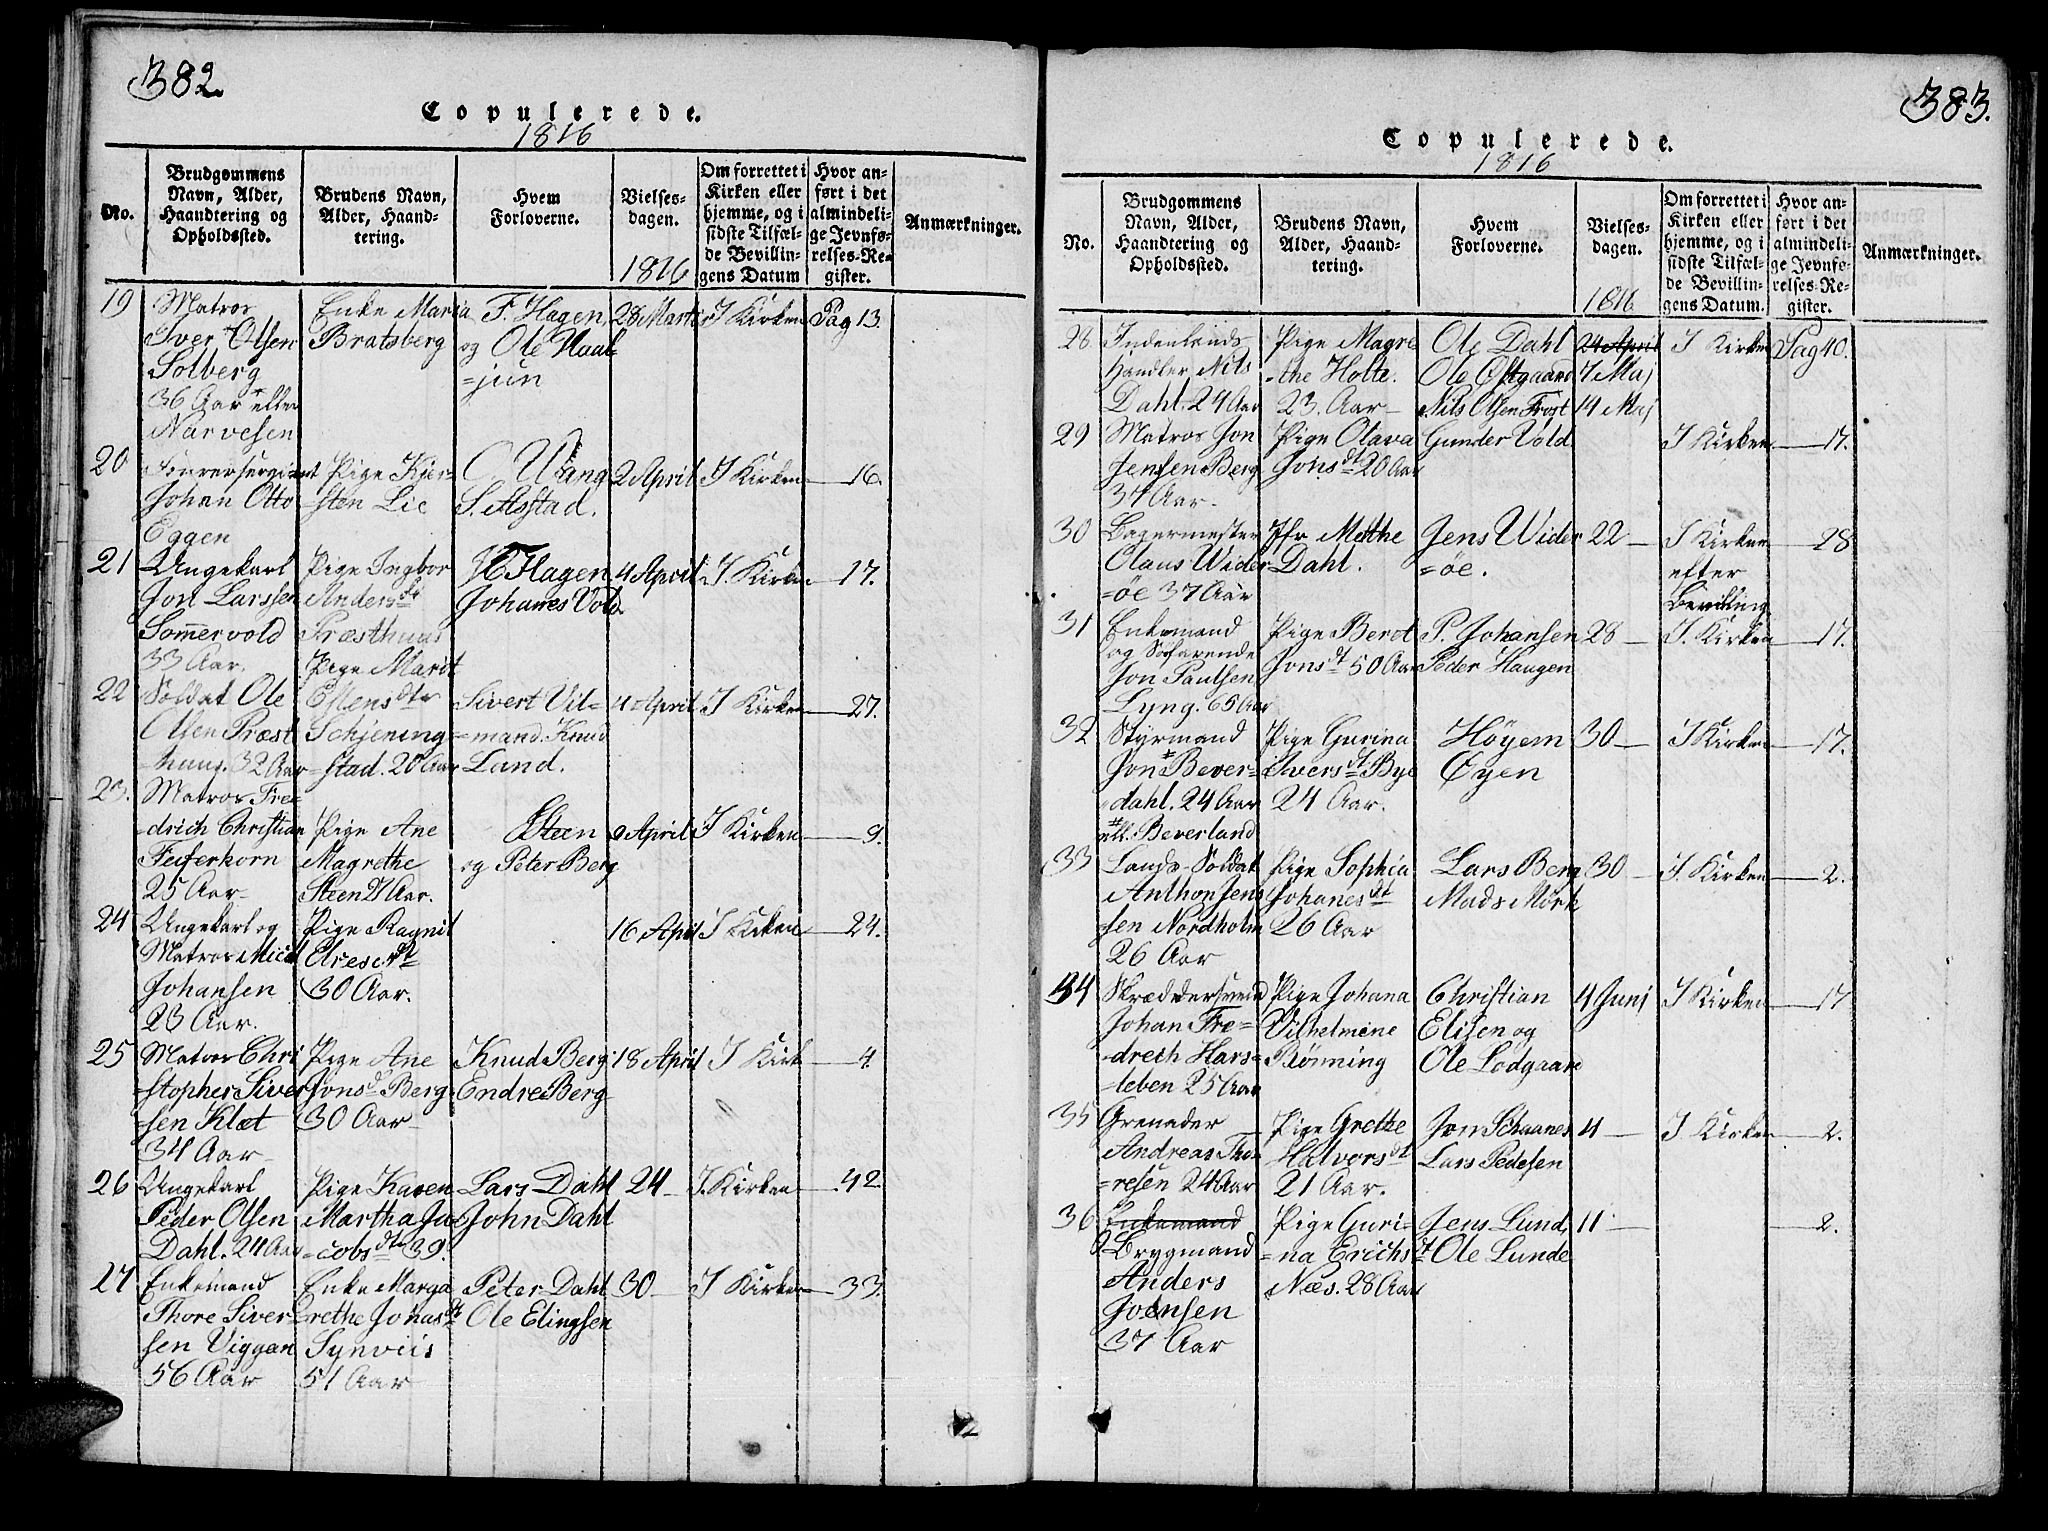 382.
Copulerede.
1816
No.
Brudgommens Navn, Alder, Haandtering og Opholdssted.
Brudens Navn, Alder, Haandtering.
Hvem Forloverne.
Vielsesdagen.
1816
Om forrettet i Kirken eller hjemme, og i sidste Tilfælde Bevillingens Datum
Hvor anført i det almindelige Jevnførelses-Register.
Anmærkninger.
19 Matros Enke Maria F. Hagen 28 Martis I Kirken Pag 13.
Iver Olsen Bratsberg og Ole Haal-
Solberg =jun
36 Aar eller
Narvesen
20 Pige Kjer- C Wang 2 April I Kirken 16.
Johan Otto -sten Lie S. Aastad.
Eggen
21 Ungekarl Pige Ingbor Hagen 4 April I. Kirken 17.
Jon Larssen Anders dt Johanes Vold
Somervold Præsthuus
33 Aar. Pige Marit
22 Soldat Ole Estens dtr Sivert Vil= 4 April I Kirken 27.
Olsen Præst Schjening =mand. Knud
huus. 32 Aar =stad. 20 Aar Land.
23. Matros Fre=
=drich Christian Pige Ane Steen 9 April I Kirken 9.
Feiferkorn Magrethe og Peter Berg
25 Aar Steen 21 Aar.
24 Ungekarl og Pige Ragnil 16 April I Kirken 24.
Matros Mical Elresc. dt
Johansen 30 Aar.
23 Aar.
25 Matros Chri Pige Ane Knud Berg 18 April I Kirk 4
=stopher Siver Jons d Berg Endre Berg
=sen Klæt 30 Aar
34 Aar
26 Ungekarl Pige Karen Lars Dahl 24 I. Kirken 42
Peder Olsen Martha Ja John Dahl
Dahl. 24 Aar =cobs dtr 39.
27 Enkemand Enke Marga Peter Dahl 30 I Kirken 33.
Thore Siver =rethe Jonas dt Ole Elingsen
sen Viggan Synviis
56 Aar 51 Aar
383.
Copulerede.
1816
No.
Brudgommens Navn, Alder, Haandtering og Opholdssted.
Brudens Navn, Alder, Haandtering.
Hvem Forloverne.
Vielsesdagen.
1816
Om forrettet i Kirken eller hjemme, og i sidste Tilfælde Bevillingens Datum.
Hvor anført i det almindelige Jevnførelses-Register.
Anmærkninger.
28 Indenlands Pige Magre Ole Dahl 24 April I Kirken Pag 40.
Handler Nils =the Holte. Ole Østgaard 7 Maj
Dahl. 24 Aar 23. Aar Nils Olsen Frost 14 Maj
29 Matros Jon Pige Olava Gunder Vold I Kirken 17.
Jensen Berg Jons dt 20 Aar
37 Aar.
30 Bagermester Jfr Methe Jens Wider 22 I Kirken 28
Olaus Wider Dahl. =öe. efter
=öe 37 Aar Bevilling
31 Enkemand Pige Beret P. Johansen 28 I. Kirken 17.
og Søfarende Jons dt 50 Aar Peder Haugen
Jon Paulsen
Lyng. 65 Aar
32 Styrmand Pige Gurina Höyem 30 I Kirken 17.
Jon Bever= Ivers dt Bye Oyen
dahl. 24 Aar 24 Aar.
ell. Beverland
33 Lands-Soldat Pige Sophia Lars Berg 30 I. Kirken 2.
Anthon Jens Johanes dt Mads Mörk
sen Nordholm 26 Aar
26 Aar
34 Skræddersvend Pige Johana Christian 4 Juni I Kirken 17
Johan Fre= Vilhelmine Elisen og
=drech Hars= Rönning Ole Lodgaard
=leben 25 Aar
35 Grenader Pige Grethe Jon Schaanes 4 I Kirken 2.
Andreas Tho Halvors dt Lars Pedesen
=resen 24 Aar 21 Aar.
36 Enkemand Pige Guri= Jens Lund, 11 2.
Brygmand =na Erichs dt Ole Lunde
Anders Næs. 28 Aar
Joensen
37 Aar